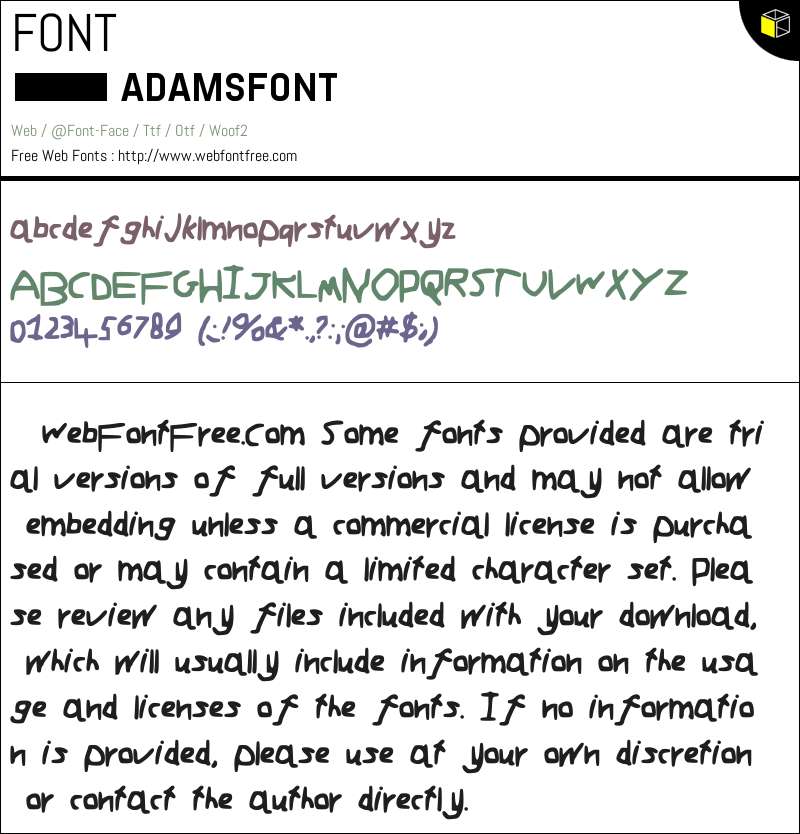 FONT
ADAMSFONT
Web / @Font-Face / Ttf / Otf / Woof2
Free Web Fonts : http://www.webfontfree.com
abcdefghijklmnopqrstuvwxyz
ABCDEFGHIJKLMNOPQRSTUVWXYZ
0123456789 (;:!%&*.,?:;@#$;)
WebFontFree.Com Some fonts provided are tri
al versions of full versions and may not allow
embedding unless a commercial license is purcha
sed or may contain a limited character set. Plea
se review any files included with your download,
which will usually include information on the usa
ge and licenses of the fonts. If no informatio
n is provided, please use at your own discretion
or contact the author directly.